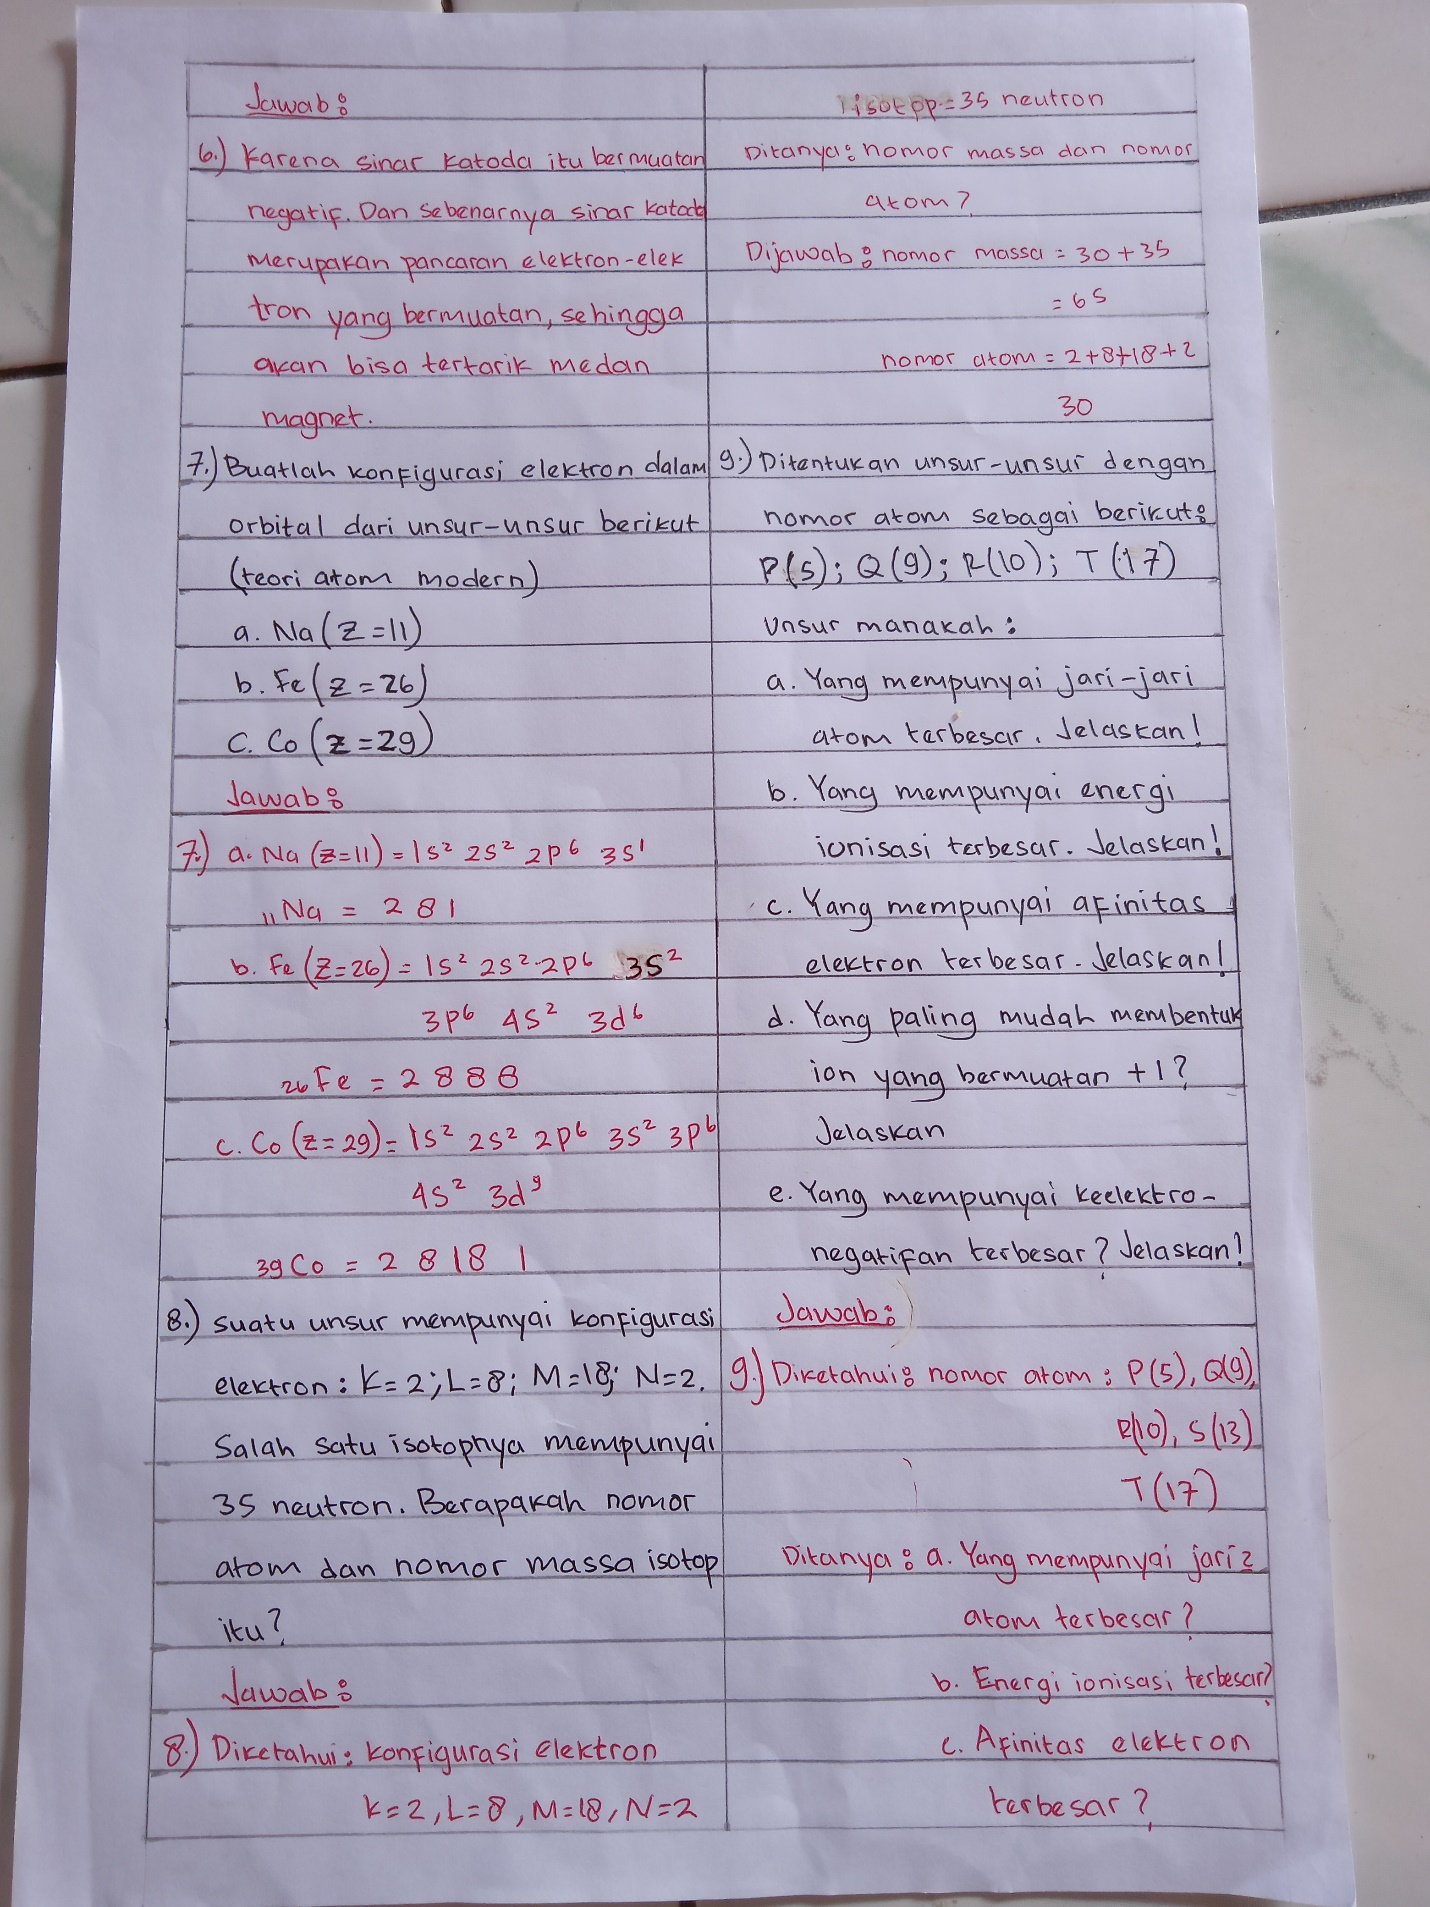 Jawab:
6.) Karena sinar katoda itu bermuatan
negatif. Dan sebenarnya sinar katoda
merupakan pancaran elektron-elek
tron yang bermuatan, sehingga
akan bisa tertarik medan
magnet.
7.) Buatlah konfigurasi elektron dalam
orbital dari unsur-unsur berikut
(teori atom modern)
a. Na (Z=11)
b. Fe (Z=26)
c. Co (Z=29)
Jawab:
7.) a. Na (Z=11) = 1s² 2s² 2p⁶ 3s¹
₁₁Na = 2 8 1
b. Fe (Z=26) = 1s² 2s² 2p⁶ 3s²
3p⁶ 4s² 3d⁶
₂₆Fe = 2 8 8 8
c. Co (Z=29) = 1s² 2s² 2p⁶ 3s² 3p⁶
4s² 3d⁹
₃₉Co = 2 8 18 1
8.) suatu unsur mempunyai konfigurasi
elektron : K=2; L=8; M=18; N=2.
Salah satu isotopnya mempunyai
35 neutron. Berapakah nomor
atom dan nomor massa isotop
itu?
Jawab:
8.) Diketahui: konfigurasi elektron
K=2, L=8, M=18, N=2
isotop = 35 neutron
Ditanya: nomor massa dan nomor
atom?
Dijawab: nomor massa = 30 + 35
= 65
nomor atom = 2+8+18+2
30
9.) Ditentukan unsur-unsur dengan
nomor atom sebagai berikut:
P(5); Q(9); R(10); T(17)
Unsur manakah:
a. Yang mempunyai jari-jari
atom terbesar. Jelaskan!
b. Yang mempunyai energi
ionisasi terbesar. Jelaskan!
c. Yang mempunyai afinitas
elektron terbesar. Jelaskan!
d. Yang paling mudah membentuk
ion yang bermuatan +1?
Jelaskan
e. Yang mempunyai keelektro-
negatifan terbesar? Jelaskan!
Jawab:
9.) Diketahui: nomor atom : P(5), Q(9),
R(10), S(13)
T(17)
Ditanya: a. Yang mempunyai jari2
atom terbesar?
b. Energi ionisasi terbesar?
c. Afinitas elektron
terbesar?